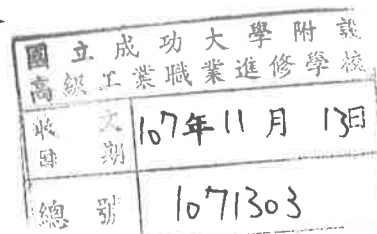 國立成功大學附設
高級工業職業進修學校
收文日期 107年11月13日
總號 1071303